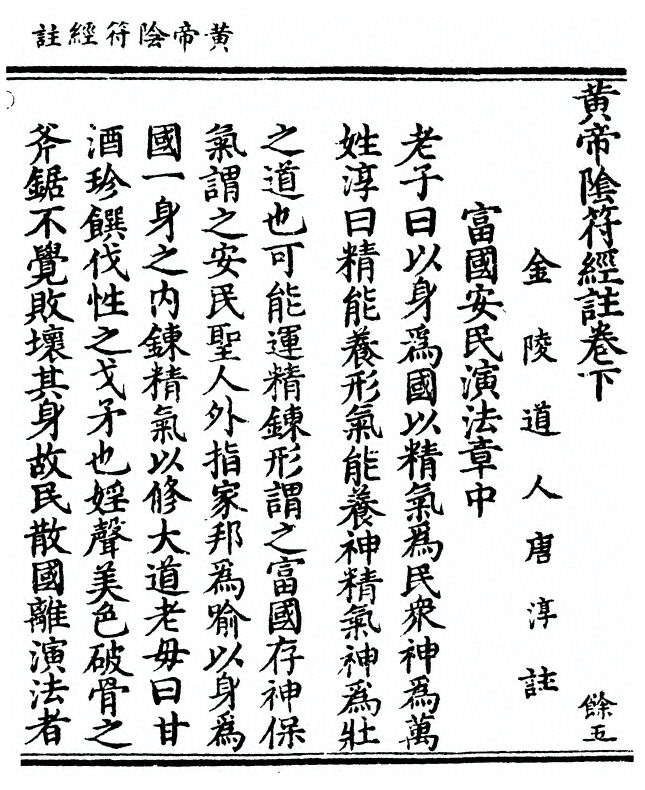 黄帝陰符經註
黄帝陰符經註卷下
餘五
金陵道人唐淳註
富國安民演法章中
老子曰以身爲國以精氣爲民衆神爲萬
姓淳曰精能養形氣能養神精氣神爲壯
之道也可能運精鍊形謂之富國存神保
氣謂之安民聖人外指家邦爲喻以身爲
國一身之内鍊精氣以修大道老毋曰甘
酒珍饌伐性之戈矛也婬聲美色破骨之
斧鋸不覺敗壞其身故民散國離演法者